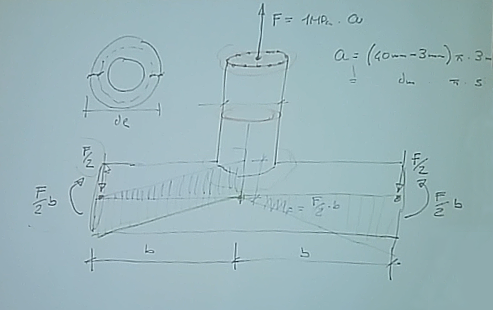 F = 1MPa · a
a = (40mm-3mm) π · 3m
= dm · π · s
de
F/2
F/2
F/2 b
= F/2 · b
F/2 b
b
b